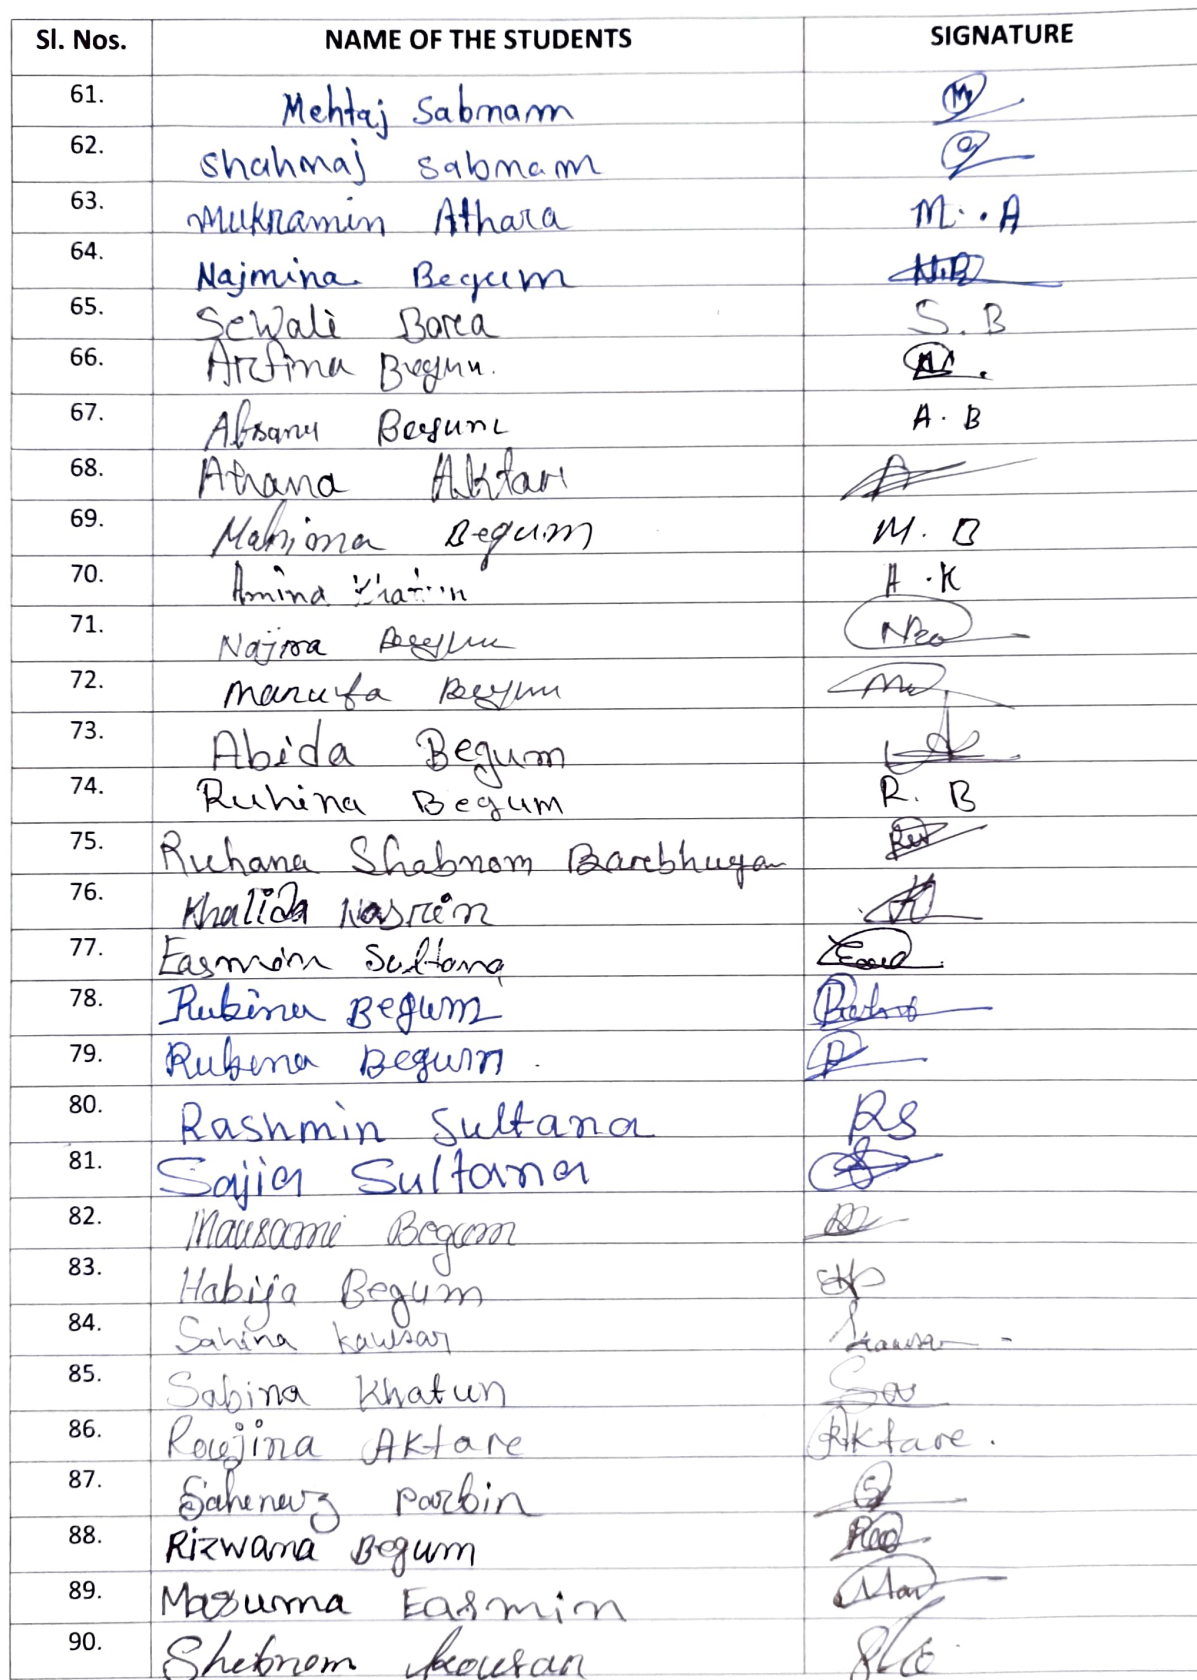 Sl. Nos. NAME OF THE STUDENTS SIGNATURE
61. Mehtaj Sabnam
62. Shahnaj Sabnam
63. Mukramin Athara M. . A
64. Najmina Begum N.B
65. Sewali Bora S. B
66. Arfina Begum.
67. Absanu Begum A. B
68. Athana Aktari
69. Mahima Begum M. B
70. Amina Khatun A .K
71. Najma Begum
72. Marufa Begum
73. Abida Begum
74. Ruhina Begum R. B
75. Ruhana Shabnom Barebhuyan
76. Khalida Nasrin
77. Easmin Sultana
78. Rubina Begum
79. Rubena Begum
80. Rashmin Sultana RS
81. Sajia Sultana
82. Mausami Begum
83. Habija Begum
84. Sahina Kawsar
85. Sabina Khatun
86. Roujina Aktare Aktare.
87. Sahenaz Parbin
88. Rizwana Begum
89. Masuma Easmin
90. Shebnom Kousar